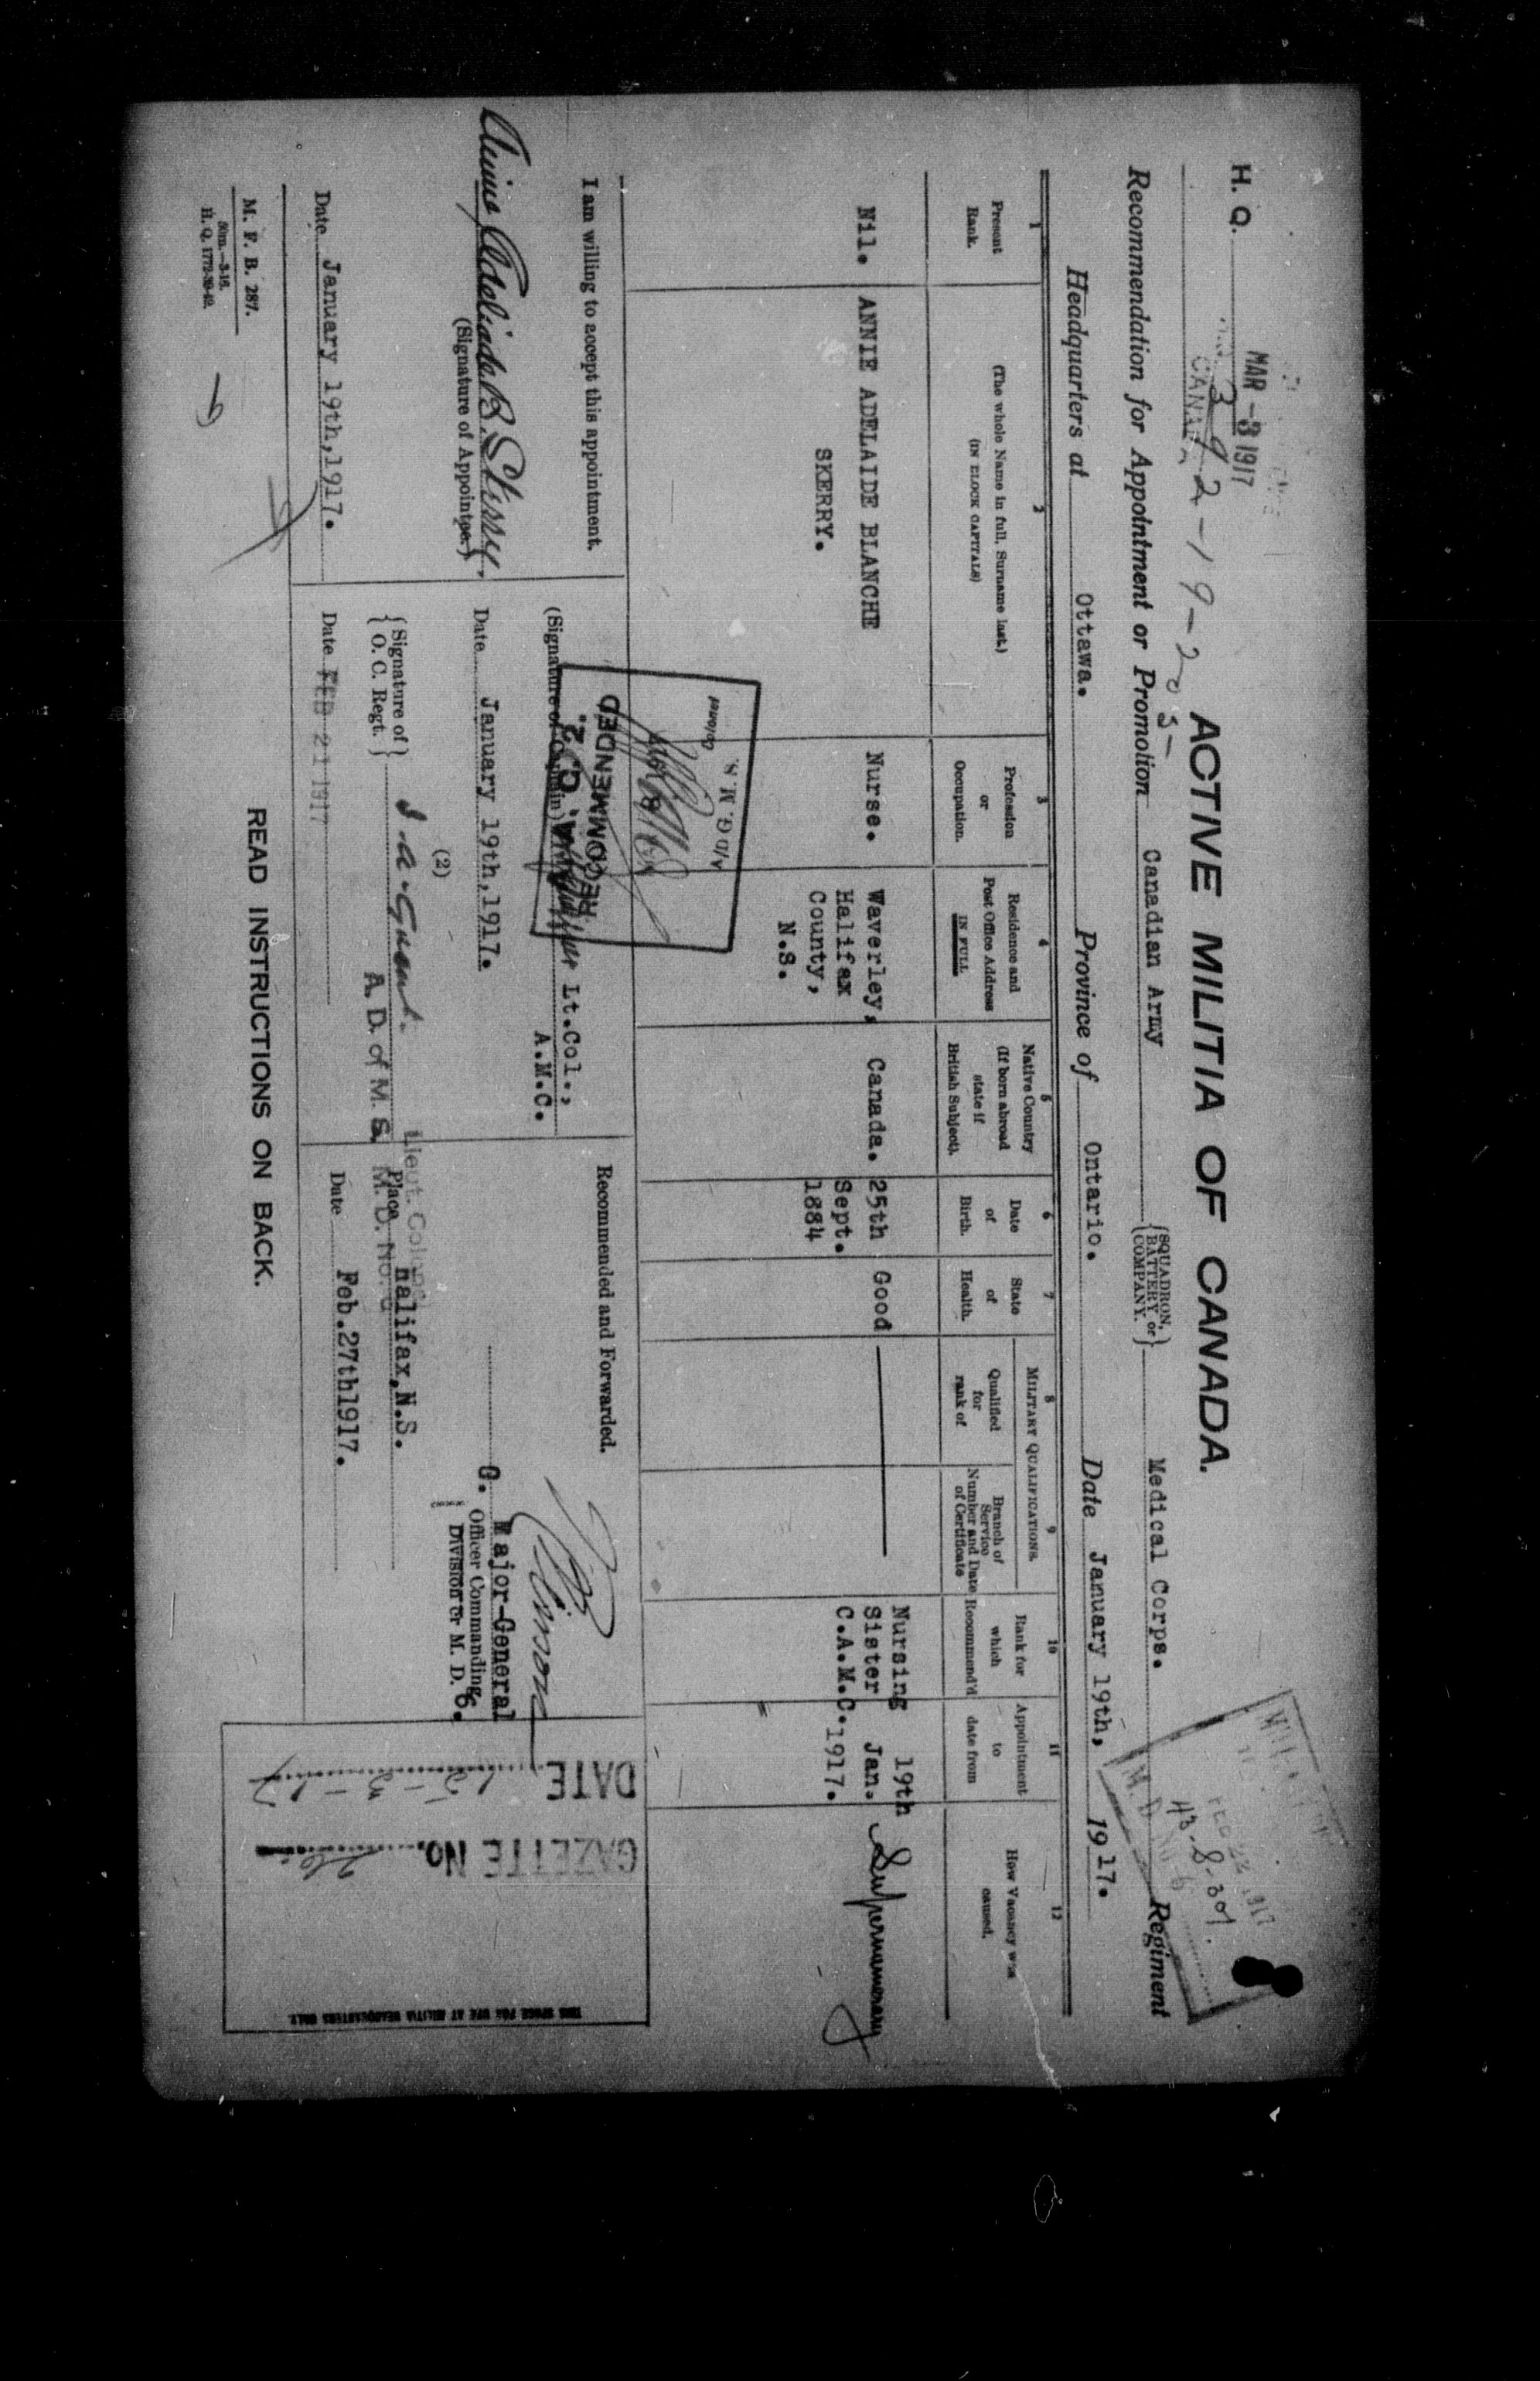 H. Q.
MAR -3 1917
CANADA
ACTIVE MILITIA OF CANADA.
Recommendation for Appointment or Promotion Canadian Army {SQUADRON, BATTERY or COMPANY.} Medical Corps. Regiment
Headquarters at Ottawa. Province of Ontario. Date January 19th, 1917.
43-8-301.
1
Present
Rank.
2
(The whole Name in full, Surname last.)
(IN BLOCK CAPITALS)
3
Profession
or
Occupation.
4
Residence and
Post Office Address
IN FULL
5
Native Country
(If born abroad
state if
British Subject).
6
Date
of
Birth.
7
State
of
Health.
MILITARY QUALIFICATIONS.
8
Qualified
for
rank of
9
Branch of
Service
Number and Date
of Certificate
10
Rank for
which
Recommend'd
11
Appointment
to
date from
12
How Vacancy was
caused.
Nil.
ANNIE ADELAIDE BLANCHE
SKERRY.
Nurse.
Waverley,
Halifax
County,
N.S.
Canada.
25th
Sept.
1884
Good
Nursing
Sister
C.A.M.C.
19th
Jan.
1917.
Supernumerary
A/D G. M. S.
Colonel
RECOMMENDED
I am willing to accept this appointment.
Annie Adelaide B. Skerry.
(Signature of Appointee.)
Date January 19th,1917.
(Signature of Captain) Lt.Col.,
A.M.C.
Date January 19th,1917.
(2)
{Signature of O. C. Regt.}
A. D. of M. S.
Lieut. Colonel
M. D. No. 6
Date FEB 21 1917
Recommended and Forwarded.
Major-General
G. Officer Commanding
Division or M. D. 6.
Place Halifax,N.S.
Date Feb.27th1917.
DATE
GAZETTE No.
THIS SPACE FOR USE AT MILITIA HEADQUARTERS ONLY.
M. F. B. 287.
50m.—3-16.
H. Q. 1772-39-49.
READ INSTRUCTIONS ON BACK.